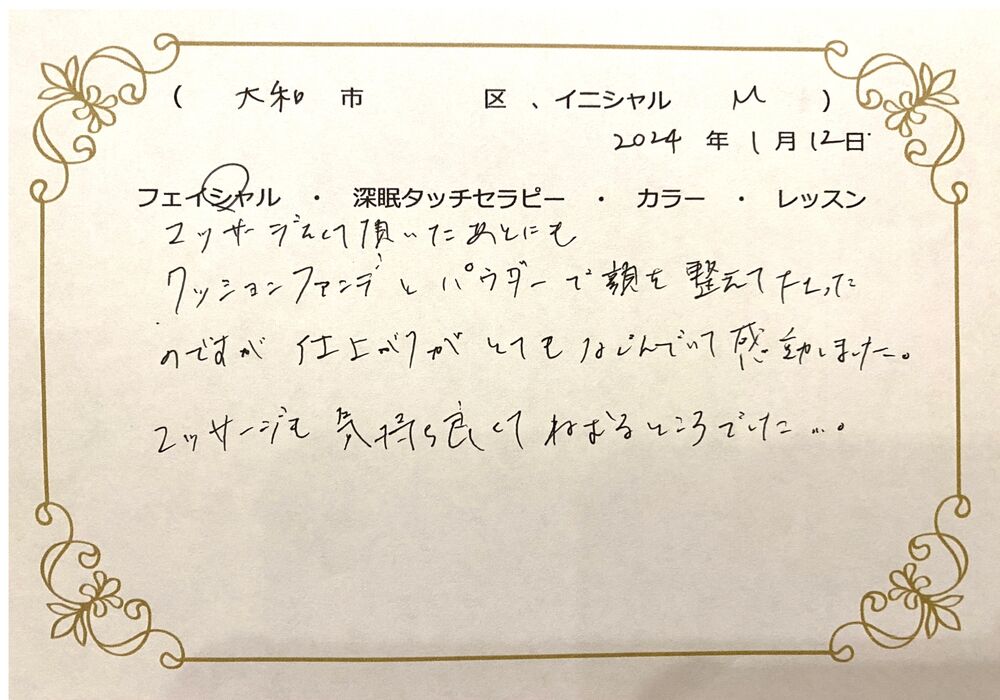 ( 大和 市 区、イニシャル M )
2024 年 1 月 12 日
フェイシャル ・ 深眠タッチセラピー ・ カラー ・ レッスン
マッサージして頂いたあとにも
クッションファンデとパウダーで顔を整えてたった
のですが 仕上がりがとてもなじんでいて感動しました。
マッサージも気持ち良くてねむるところでした…。